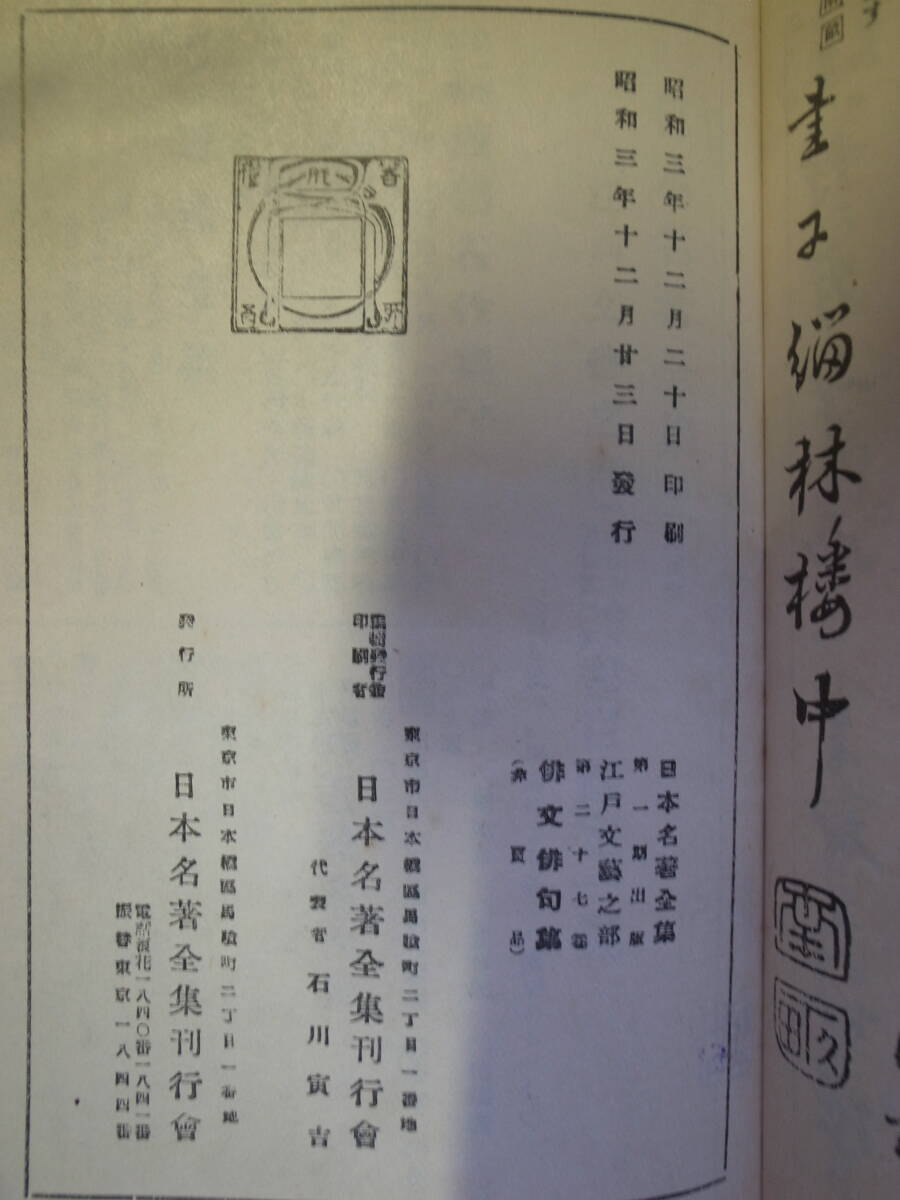 昭和三年十二月二十日印刷
昭和三年十二月廿三日發行
日本名著全集
第一期出版
江戸文藝之部
第二十七卷
俳文俳句集
(非賣品)
編輯兼發行者
印刷者
東京市日本橋區馬喰町二丁目一番地
日本名著全集刊行會
代表者 石川寅吉
發行所
東京市日本橋區馬喰町二丁目一番地
日本名著全集刊行會
電話浪花一八四〇番一八四一番
振替東京一八四四番
林
中